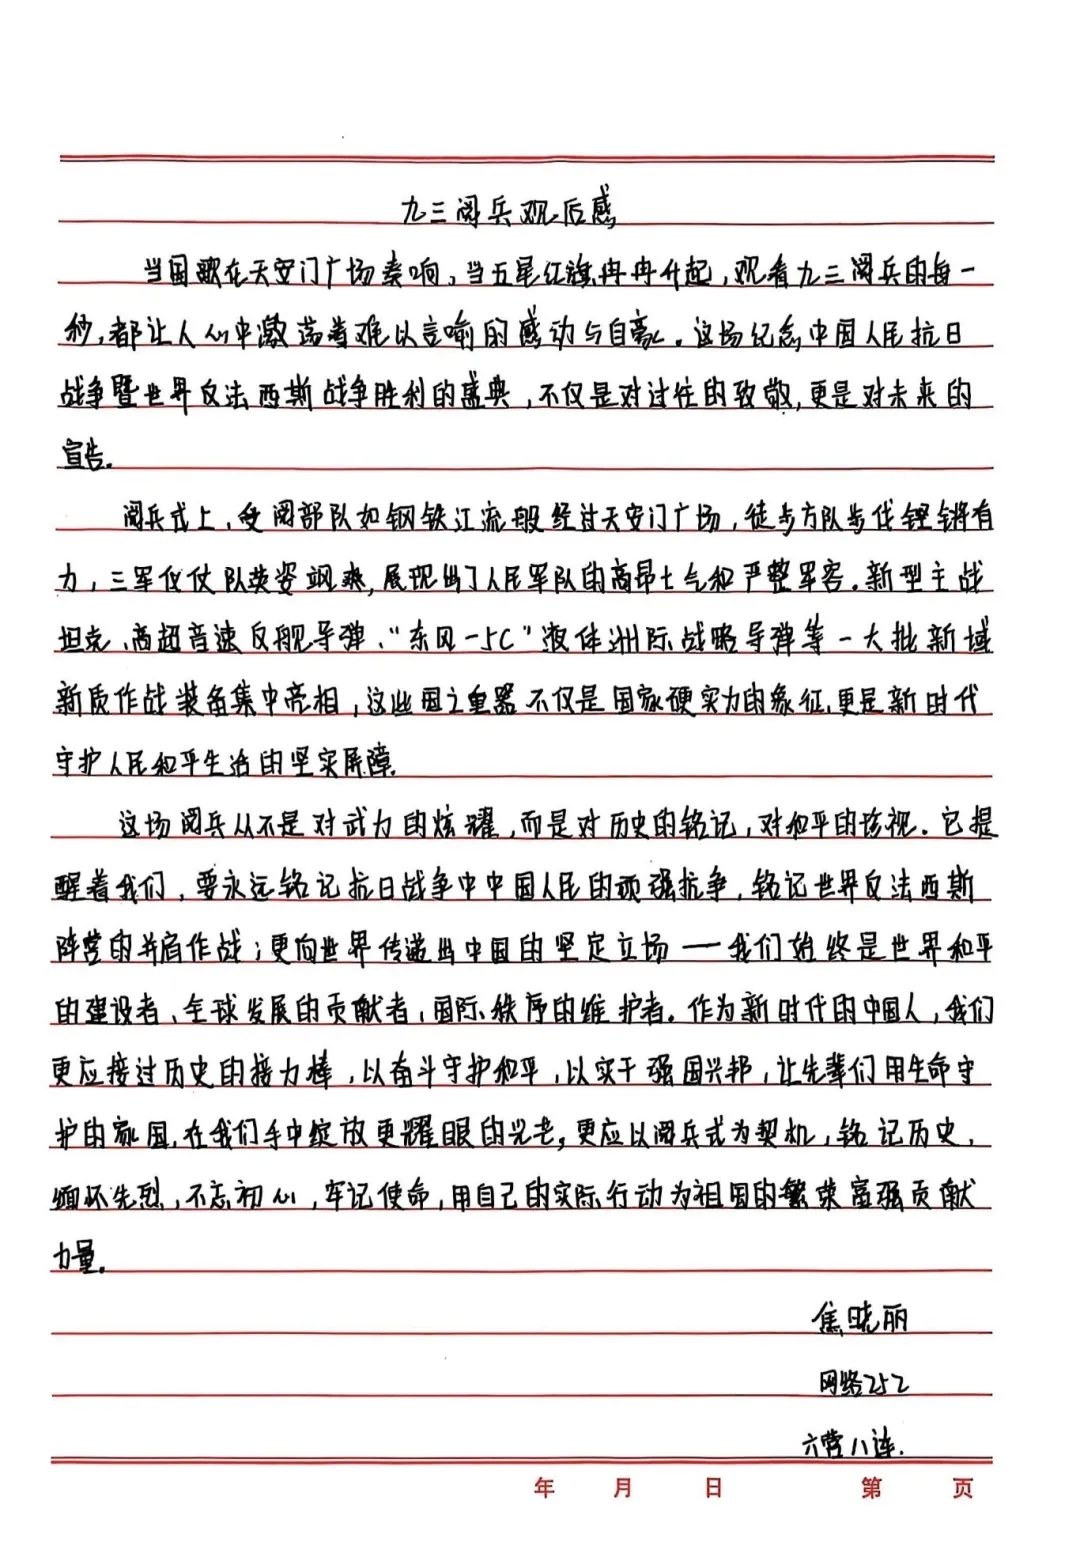 九三阅兵观后感
当国歌在天安门广场奏响,当五星红旗冉冉升起,观看九三阅兵的每一
秒,都让人心中激荡着难以言喻的感动与自豪。这场纪念中国人民抗日
战争暨世界反法西斯战争胜利的盛典,不仅是对过往的致敬,更是对未来的
宣告。
阅兵式上,受阅部队如钢铁江流般经过天安门广场,徒步方队步伐铿锵有
力,三军仪仗队英姿飒爽,展现出了人民军队的高昂士气和严整军容。新型主战
坦克、高超音速反舰导弹、“东风-5C”液体洲际战略导弹等一大批新域
新质作战装备集中亮相,这些国之重器不仅是国家硬实力的象征,更是新时代
守护人民和平生活的坚实屏障。
这场阅兵从不是对武力的炫耀,而是对历史的铭记,对和平的珍视。它提
醒着我们,要永远铭记抗日战争中中国人民的顽强抗争,铭记世界反法西斯
阵营的并肩作战;更向世界传递出中国的坚定立场——我们始终是世界和平
的建设者、全球发展的贡献者,国际秩序的维护者。作为新时代的中国人,我们
更应接过历史的接力棒,以奋斗守护和平,以实干强国兴邦,让先辈们用生命守
护的家国,在我们手中绽放更耀眼的光芒,更应以阅兵式为契机,铭记历史、
缅怀先烈,不忘初心,牢记使命,用自己的实际行动为祖国的繁荣富强贡献
力量。
焦晓丽
网络252
六营八连.
年 月 日 第 页